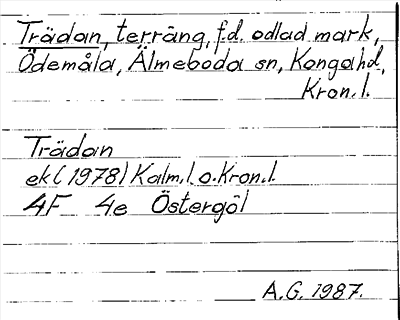 Trädan, terräng, f.d. odlad mark,
Ödemåla, Älmeboda sn, Konga hd,
Kron. l.
Trädan
ek (1978) Kalm. l o. Kron. l.
4F 4e Östergöl
A.G. 1987.